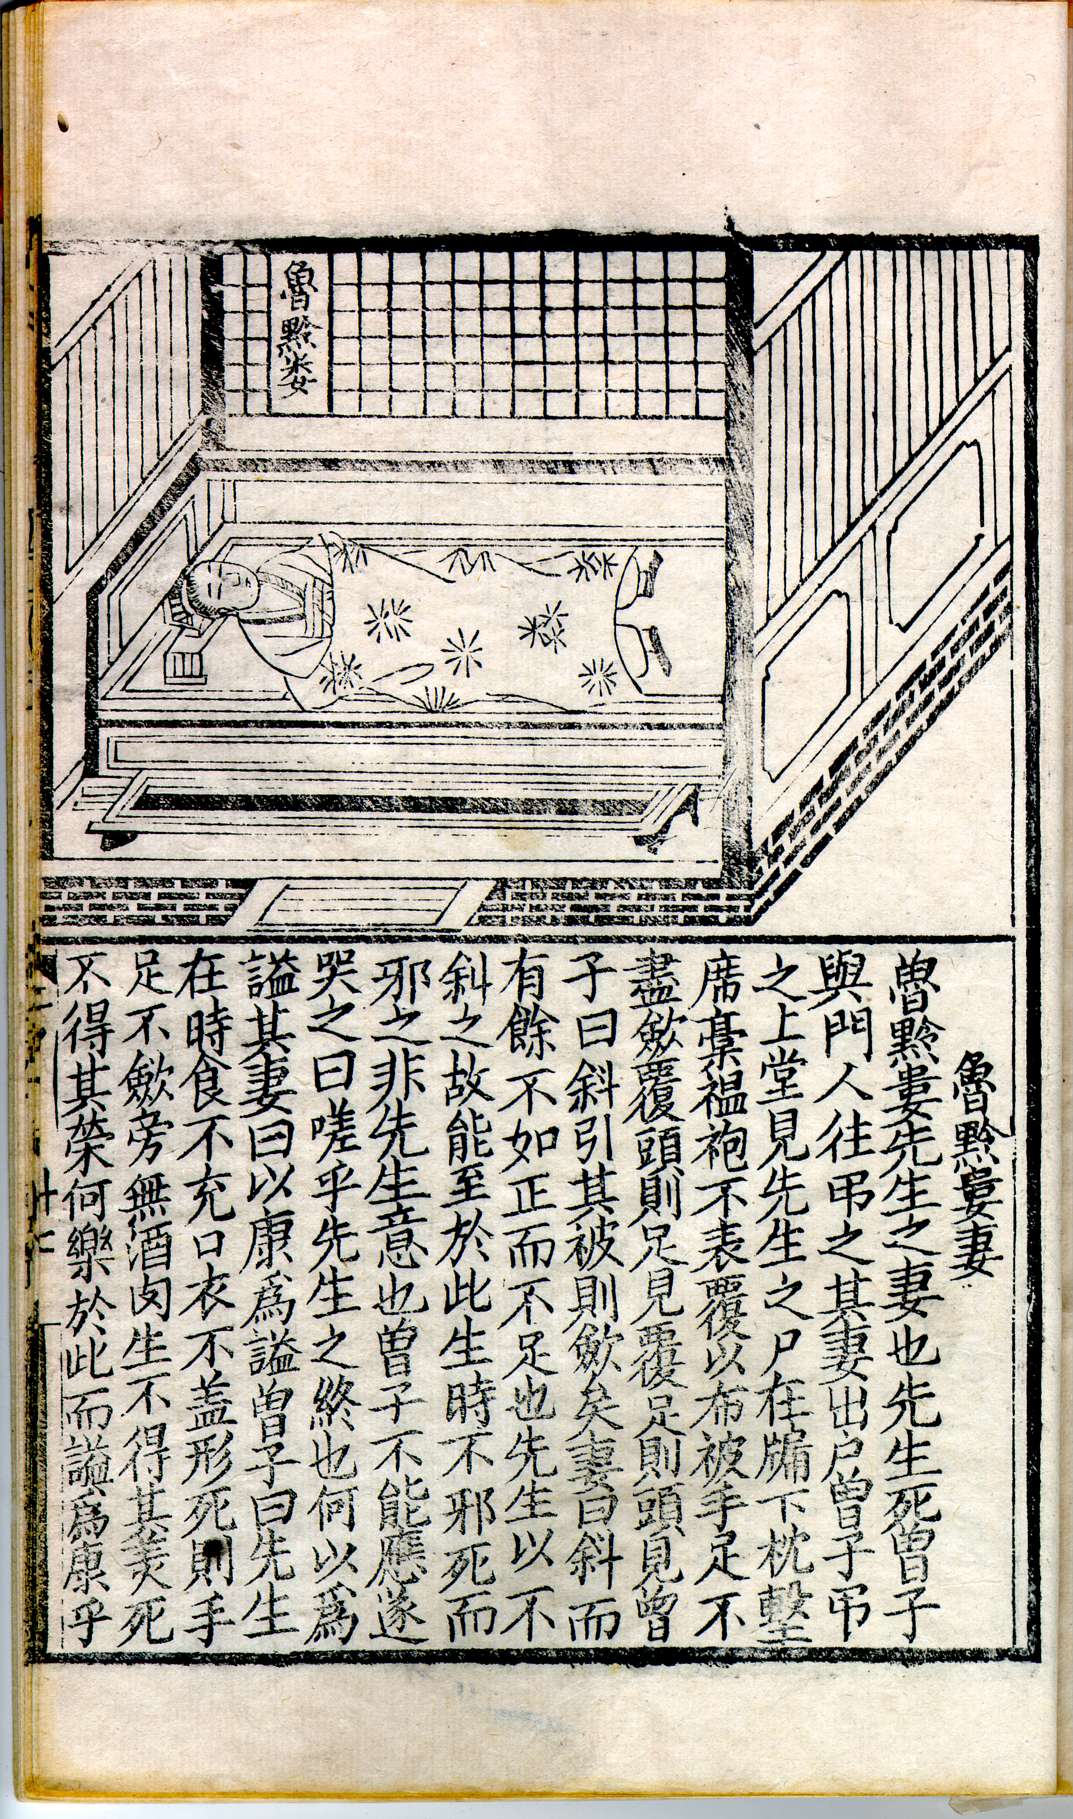 魯黔婁
魯黔婁妻
魯黔婁先生之妻也先生死曾子
與門人往弔之其妻出戶曾子弔
之上堂見先生之尸在牖下枕墼
席藁縕袍不表覆以布被手足不
盡歛覆頭則足見覆足則頭見曾
子曰斜引其被則歛矣妻曰斜而
有餘不如正而不足也先生以不
斜之故能至於此生時不邪死而
邪之非先生意也曾子不能應遂
哭之曰嗟乎先生之終也何以為
謚其妻曰以康為謚曾子曰先生
在時食不充口衣不盖形死則手
足不歛旁無酒肉生不得其美死
不得其榮何樂於此而謚為康乎